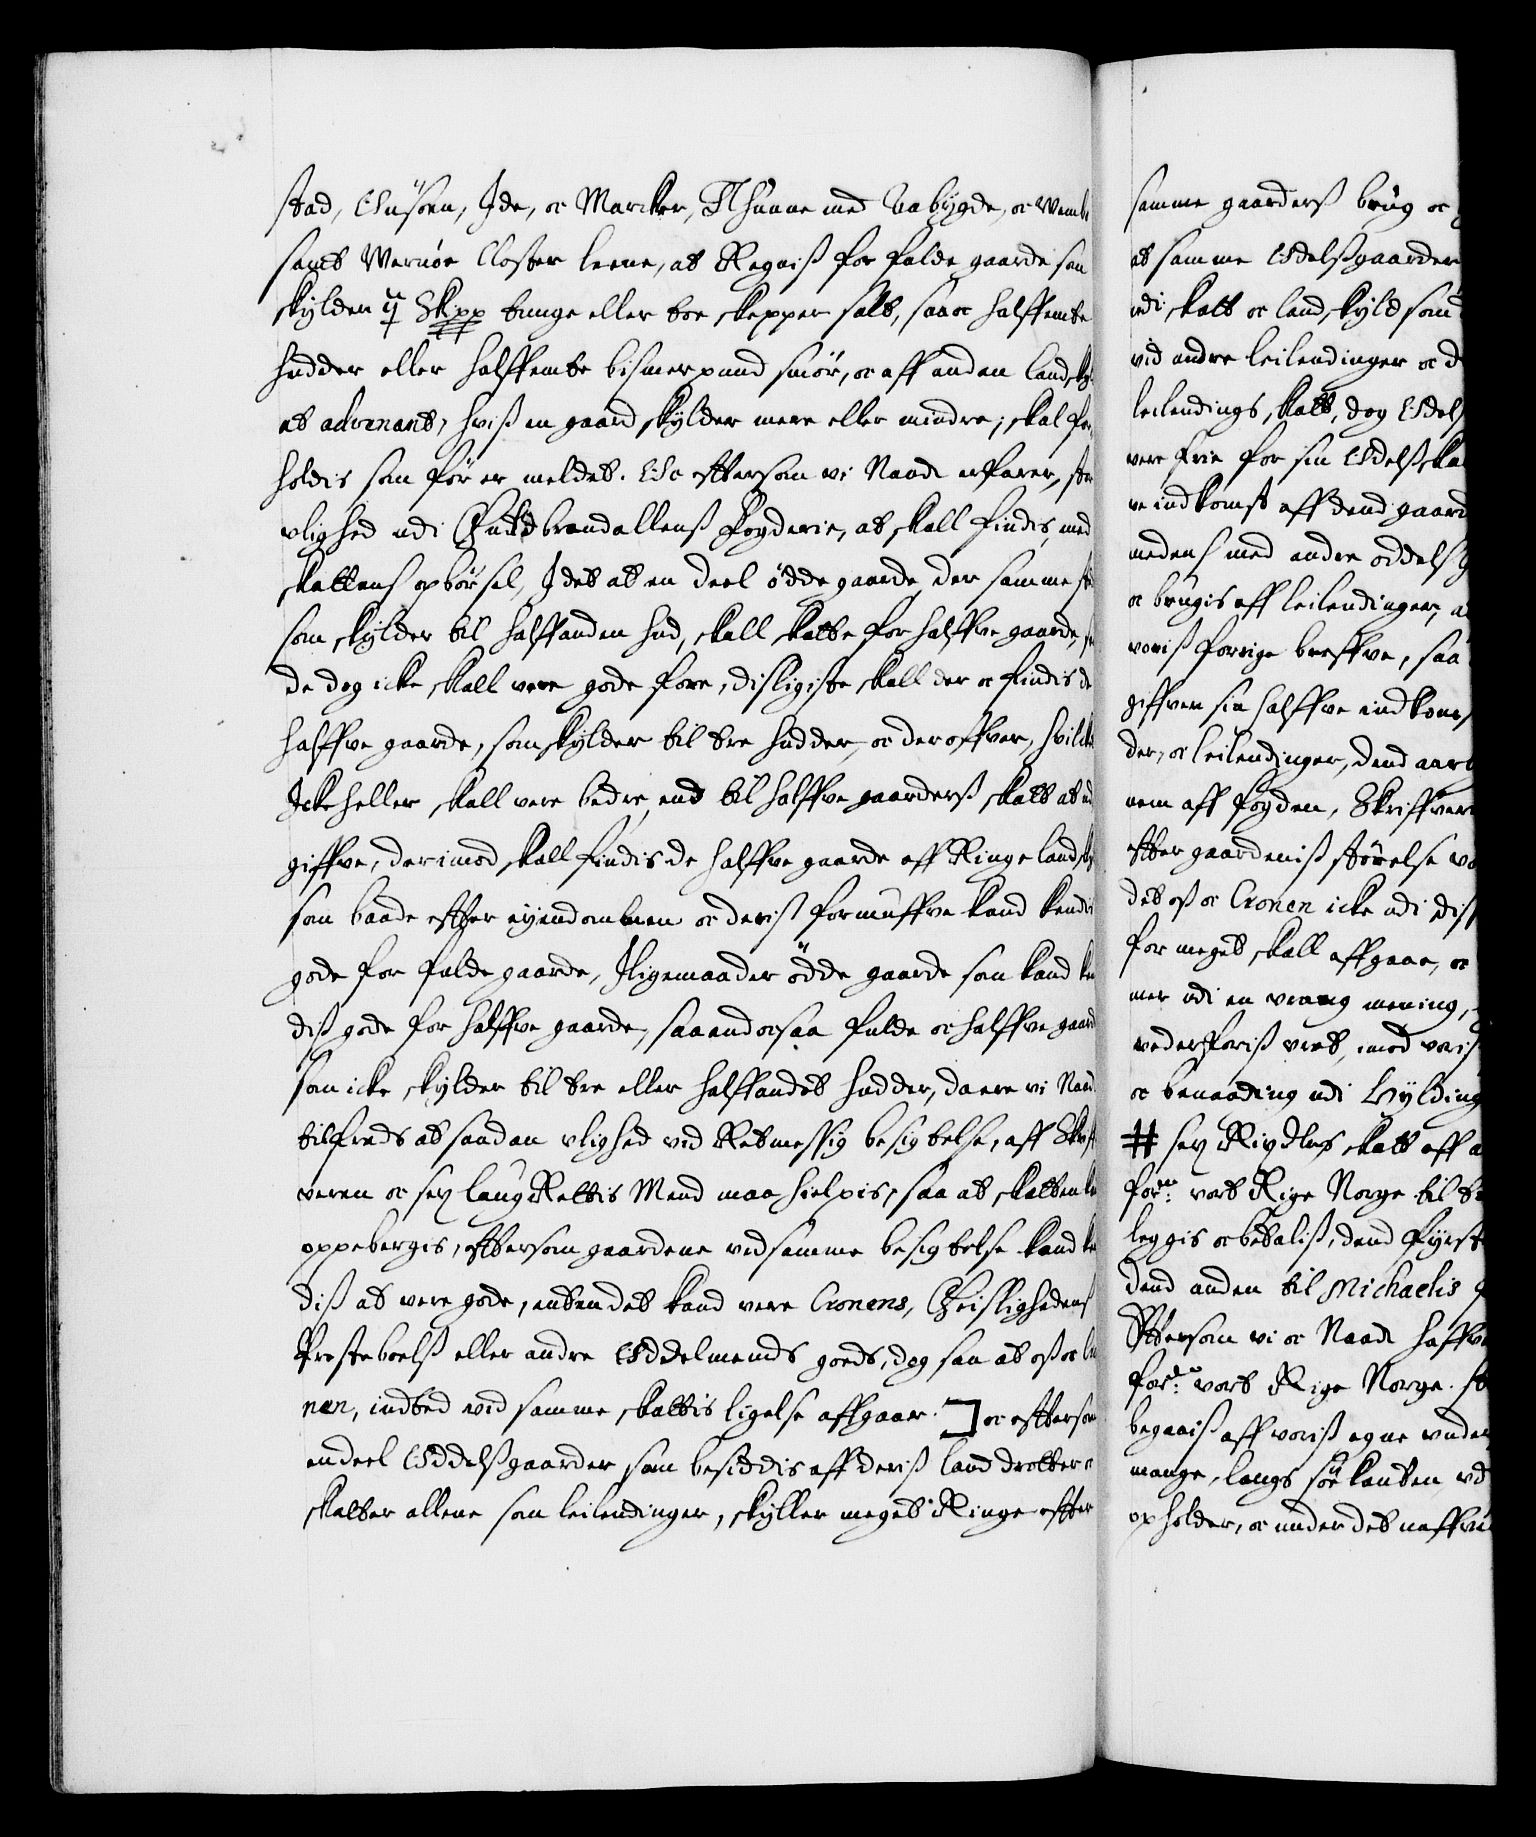 stad, Onsøen, Ide, oc Marcker, Thunne med Vabygde, oc Wembe
sampt Wernøe Closter leene, at Regnis for fulde gaarde som
skylder ij Skipp tunge eller toe skepper salt, saa oc halffemte
hudder eller halffemte bismerpund smør, oc aff anden landsky
at advenant, huis en gaard skylder mere eller mindre, skal for
holdis som før er meldet. Oc efftersom vi Naadi. erfarer, stor
vlighed udi Guldbrandallens Fogderie, at skall findis, med
skattens opbørsel, I det at en deel ødde gaarde der samme st
som skylder til halffanden hud, skall skatte for halffve gaarde,
de dog icke skall vere gode fore, disligiste skall der oc findis de
halffve gaarde, som skylder til tre hudder, oc deroffver, huilcke
Icke heller skall vere bedre end til halffve gaarders skatt at ud
giffve, derimod skall findis de halffve gaarde aff Ringe landsky
som baade effter eyendommen oc deris formuffve kand kendis
gode for fulde gaarde, Iligemaader ødde gaarde som kand ken
dis gode for halffve gaarde, saa and ocsaa fulde oc halffve gaard
som icke skylder til tre eller halffandet hudder, da ere vi Naad.
tilfreds at saadan vlighed ved Retmessig besigtelse, aff Skriff
veren oc sex laug Rettis Mend maa hielpis, saa at skatten k
oppebergis, efftersom gaardene ved samme besigtelse kand ken
dis at vere gode, enten det kand vere Cronens, Geistlighedens
Prestebolss eller andre Oddelmends goeds, dog saa at oss oc Cro
nen, indted ved samme skattis ligelse affgaar. oc efftersom
endeel Oddelssgaarder som besiddis aff deris land drotter oc
skatter allene som leilendinger, skyller meget Ringe effter
samme gaarders brug oc
at samme Odelssgaarder
udi skatt oc landskyld som
vid andre leilendinger oc d
leilendings skatt, dog Odels
vere frie for sin Odelsska
ve indkomst aff dend gaard
medens med andre oddels g
oc brugis aff leilendinger, a
voris forrige breffve, saa
giffver sin halffve indkoms
der, oc leilendinger, dend aarl
nem aff fogden, Skriffver
effter gaardenis størelse v
det oss oc Cronen icke udi diss
for meget skall affgaae, oc
mer udi en vrang mening,
vederfaris vret, imod voris
oc benaading udi Hylding
# sex Rixdlrs skatt aff
forn: vort Rige Norge til t
leggis oc betalis, dend fyrst
dend anden til Michaelis
Effterson vi oc Naadi. haffve
ford: vort Rige Norge. st
begaais aff voris egne under
mange, langs søekanten, ud
opholder, oc under det naffn